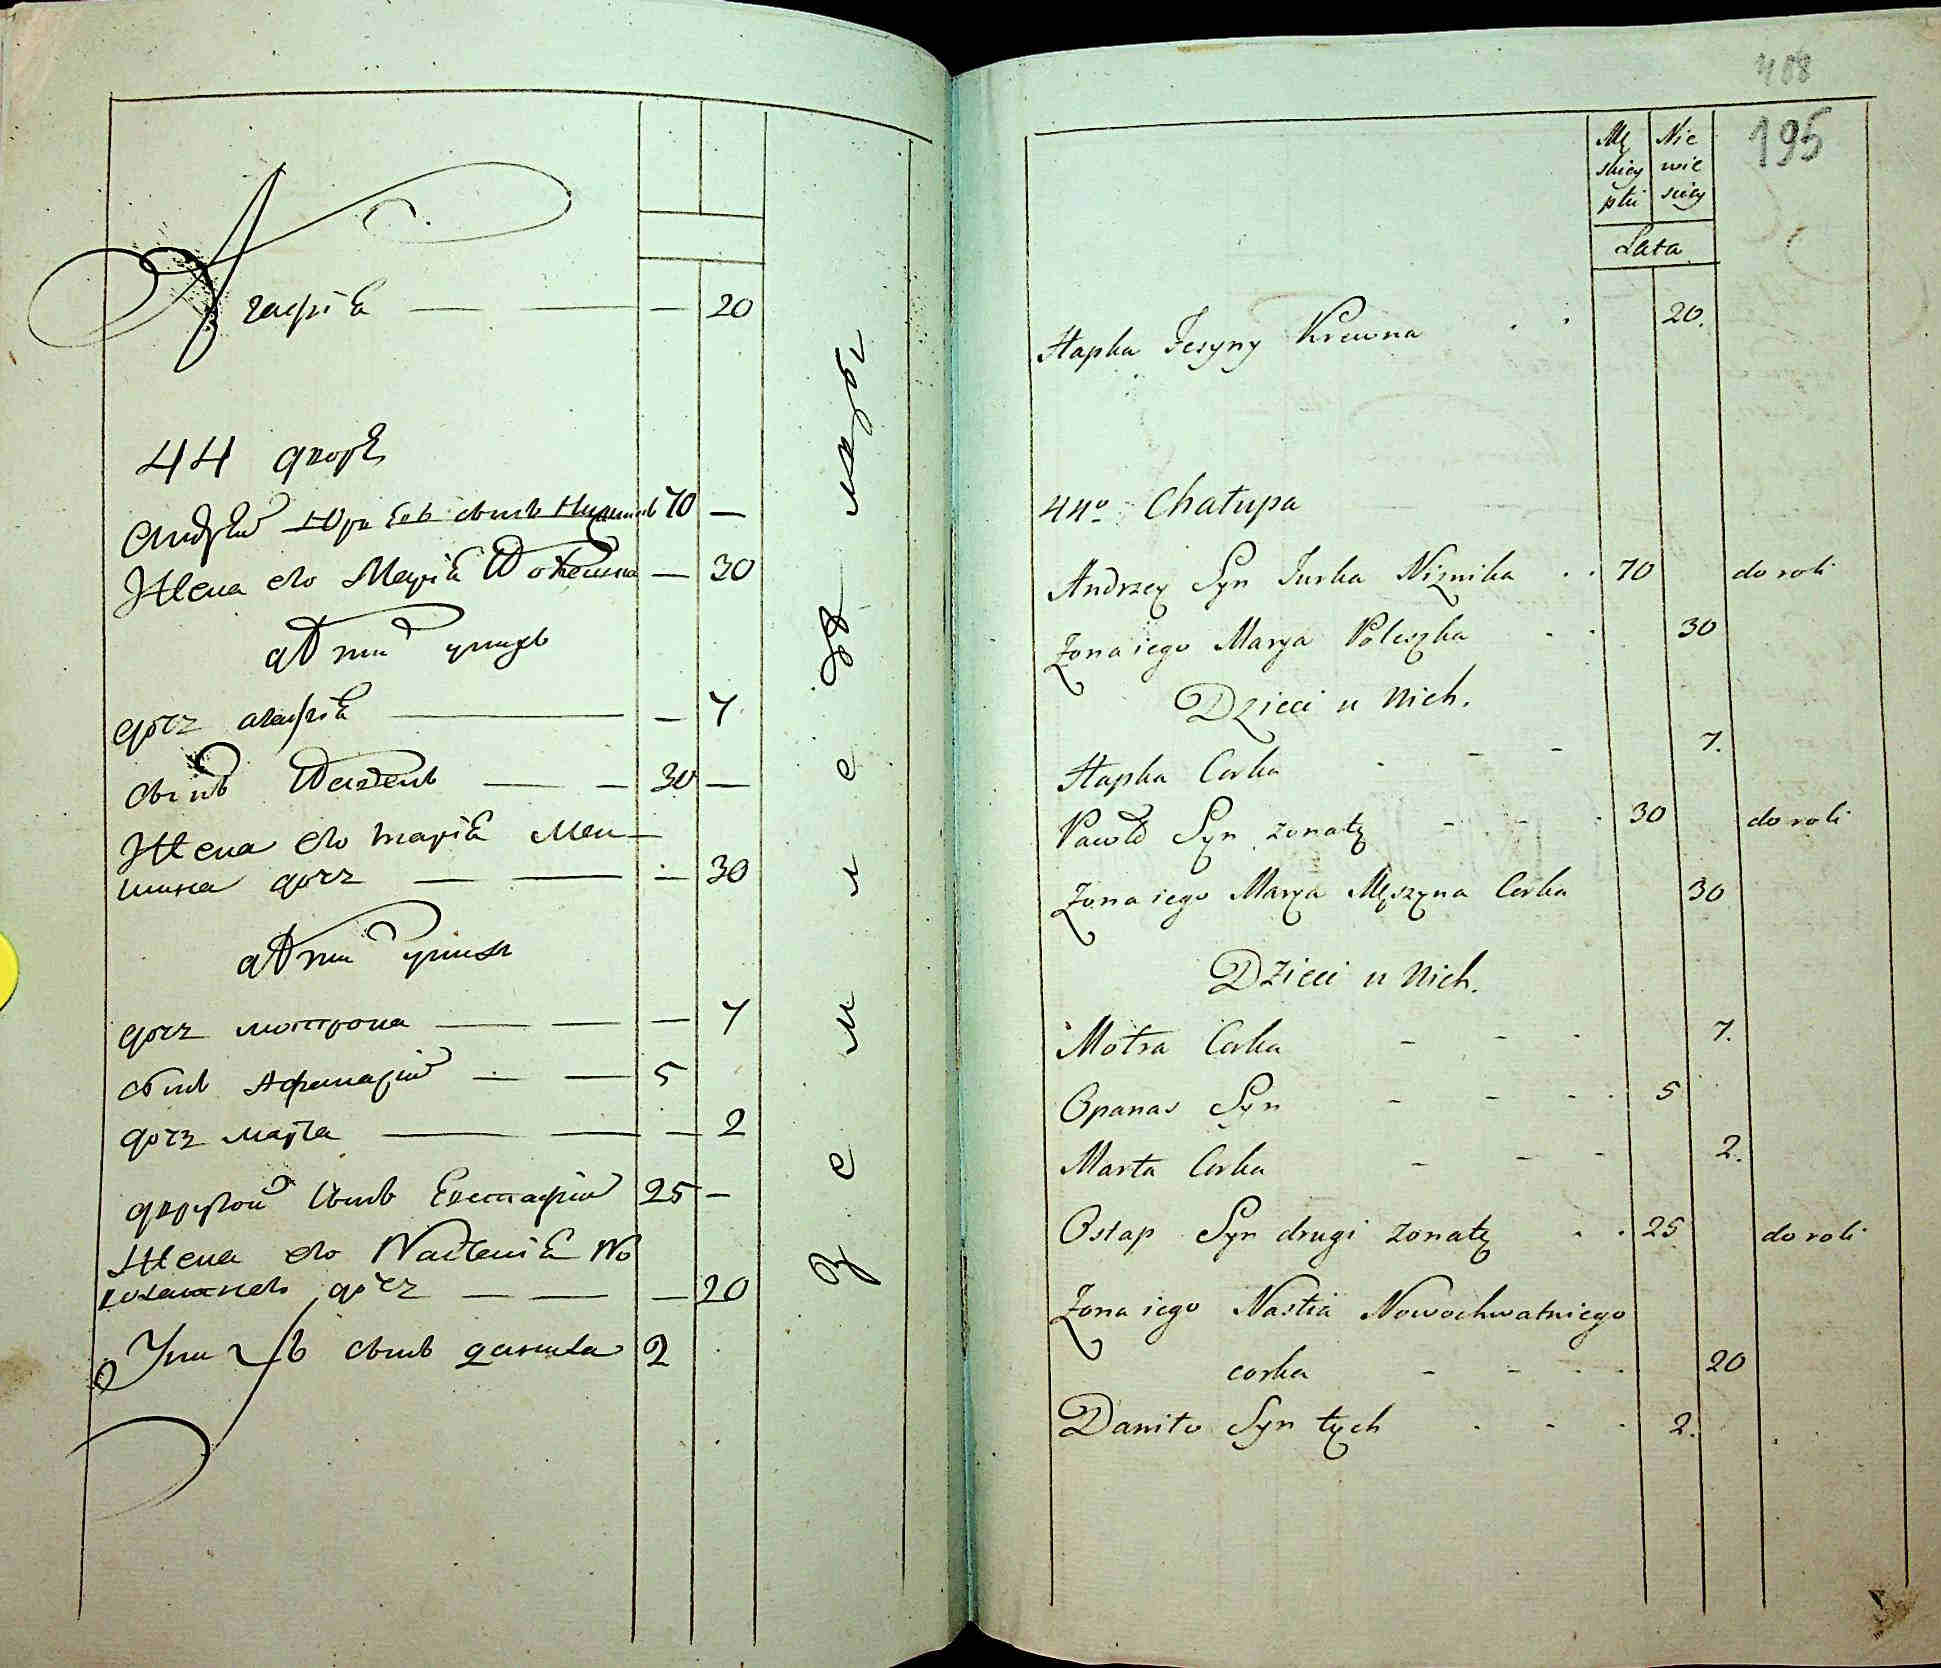 Агафія — — — 20
44 дворъ
Андрѣй Юріевъ сынъ Нижникъ 70 —
Жена его Марія — 30
дѣти у нихъ
дочь агафія — — 7
сынъ Павелъ — — 30 —
Жена его марія Мен-
шина дочь — — — 30
дѣти у нихъ
дочь мотрона — — — 7
сынъ Афанасій — — 5
дочь марта — — — 2
другой сынъ Евстафій 25 —
Жена его Настасія Но
дочь — — — 20
У нихъ сынъ данила 2
408
195
Mę Nie
skiey wie
płci sciey
Lata
Hapka Jesyny Krewna . . 20.
44º Chałupa
Andrzey Syn Jurka Niznika . . 70 do roli
Zona iego Marya Poleszka - - 30
Dzieci u Nich.
Hapka Corka - - - 7.
Paweł Syn zonaty - - . 30 do roli
Zona iego Marya Męszyna Corka 30
Dzieci u Nich.
Motra Corka - - - 7.
Opanas Syn - - - . 5
Marta Corka - - - 2.
Ostap Syn drugi zonaty . . 25 do roli
Zona iego Nastia Nowochwatniego
corka - - - . 20
Daniło Syn tych . - . 2.